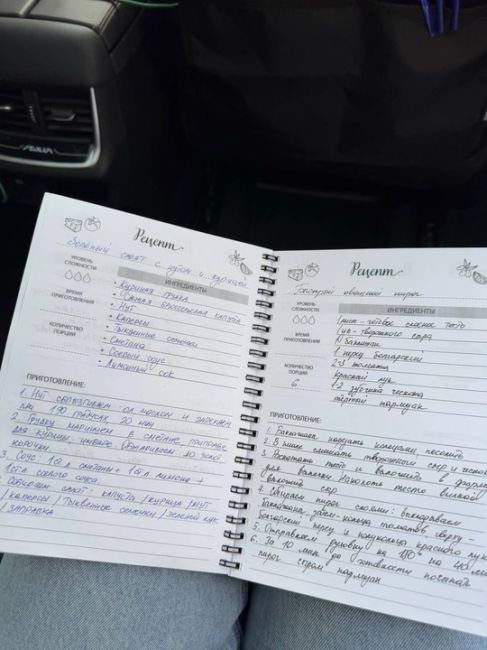 Рецепт
Зелёный салат с нутом и курицей
УРОВЕНЬ СЛОЖНОСТИ
ВРЕМЯ ПРИГОТОВЛЕНИЯ
КОЛИЧЕСТВО ПОРЦИЙ
ИНГРЕДИЕНТЫ
Куриная грудка
капуста
Нут
Каперсы
Тыквенные семечки
Сметана
Соевый соус
Лимонный сок
ПРИГОТОВЛЕНИЕ:
1. Нут
при 190 градусах, 20 мин
2. Грудку маринуем в сметане, приправе
для курицы, Обжариваем до золот.
корочки
3. Соус: 1 ст л сметаны + 1 ст л лимона +
1 ст л соевого соуса
салат: капуста / курица / нут
/ каперсы / тыквенные семечки / зелёный лук
/ заправка
Рецепт
овощной пирог
УРОВЕНЬ СЛОЖНОСТИ
ВРЕМЯ ПРИГОТОВЛЕНИЯ
КОЛИЧЕСТВО ПОРЦИЙ
6
ИНГРЕДИЕНТЫ
слоеное тесто
творожного сыра
1 перец болгарский
2-3 томата
красный лук
1-2 зубчика чеснока
тёртый пармезан
ПРИГОТОВЛЕНИЕ:
1. нарезать кольцами, посолить
2. В миске смешать творожный сыр и чеснок
3. Раскатать тесто и выложить в форму
для выпечки. Наколоть тесто вилкой
выложить сыр
4. Собираем пирог слоями: выкладываем
затем кольца томатов, сверху -
болгарский перец и полукольца красного лука
5. Отправляем в духовку на 180° на 40 мин
6. За 10 мин до готовности посыпать
пирог сыром пармезан